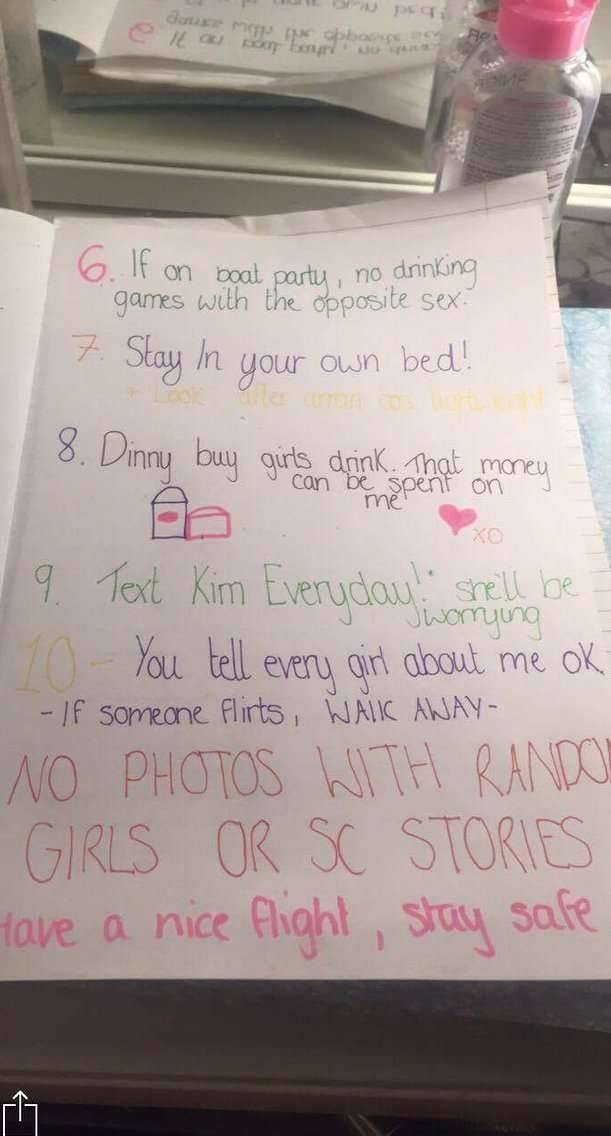 6. If on boat party, no drinking
games with the opposite sex.
7. Stay In your own bed!
+ Look after arron cos lightweight
8. Dinny buy girls drink. That money
can be spent on
me
XO
9. Text Kim Everyday! she'll be
worrying
10 - You tell every girl about me OK
- If someone flirts, WALK AWAY -
NO PHOTOS WITH RANDOM
GIRLS OR SC STORIES
Have a nice flight, stay safe